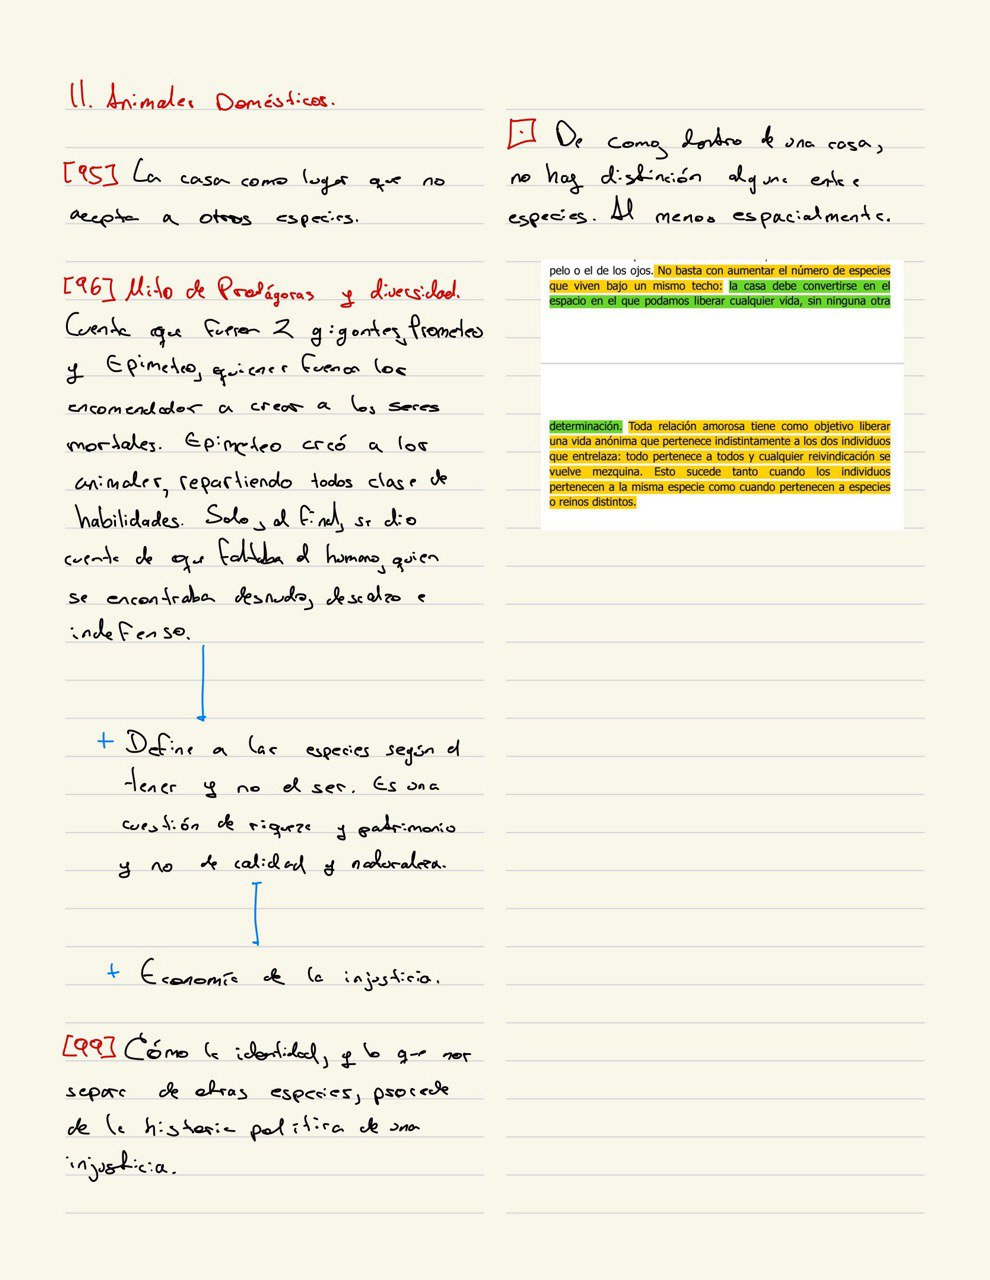 11. Animales Domésticos.
[95] La casa como lugar que no
acepta a otras especies.
[96] Mito de Protágoras y diversidad.
Cuenta que fueron 2 gigantes, Prometeo
y Epimeteo, quienes fueron los
encomendador a crear a los seres
mortales. Epimeteo creó a los
animales, repartiendo todos clase de
habilidades. Solo, al final, se dio
cuenta de que faltaba el humano, quien
se encontraba desnudo, descalzo e
indefenso.
+ Define a las especies según el
tener y no el ser. Es una
cuestión de riqueza y patrimonio
y no de calidad y naturaleza.
+ Economía de la injusticia.
[99] Cómo la identidad, y lo que nos
separa de otras especies, procede
de la historia política de una
injusticia.
De como, dentro de una casa,
no hay distinción alguna entre
especies. Al menos espacialmente.
pelo o el de los ojos. No basta con aumentar el número de especies
que viven bajo un mismo techo: la casa debe convertirse en el
espacio en el que podamos liberar cualquier vida, sin ninguna otra
determinación. Toda relación amorosa tiene como objetivo liberar
una vida anónima que pertenece indistintamente a los dos individuos
que entrelaza: todo pertenece a todos y cualquier reivindicación se
vuelve mezquina. Esto sucede tanto cuando los individuos
pertenecen a la misma especie como cuando pertenecen a especies
o reinos distintos.